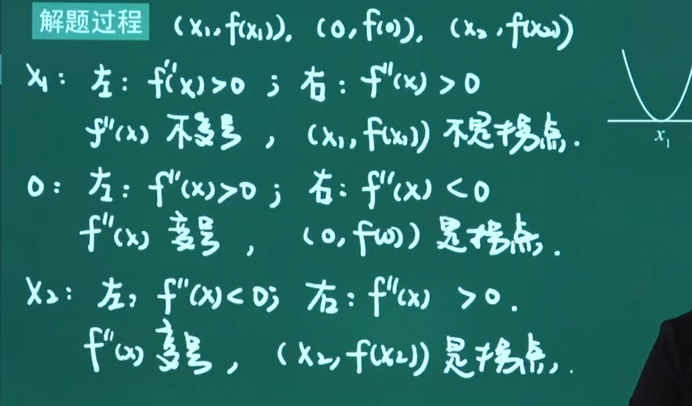 解题过程 (x₁,f(x₁)), (0,f(0)), (x₂,f(x₂))
x₁: 左: f''(x)>0 ; 右: f''(x)>0
f''(x) 不变号, (x₁,f(x₁)) 不是拐点.
0: 左: f''(x)>0; 右: f''(x)<0
f''(x) 变号, (0,f(0)) 是拐点.
x₂: 左: f''(x)<0; 右: f''(x) >0.
f''(x) 变号, (x₂,f(x₂)) 是拐点.
x₁